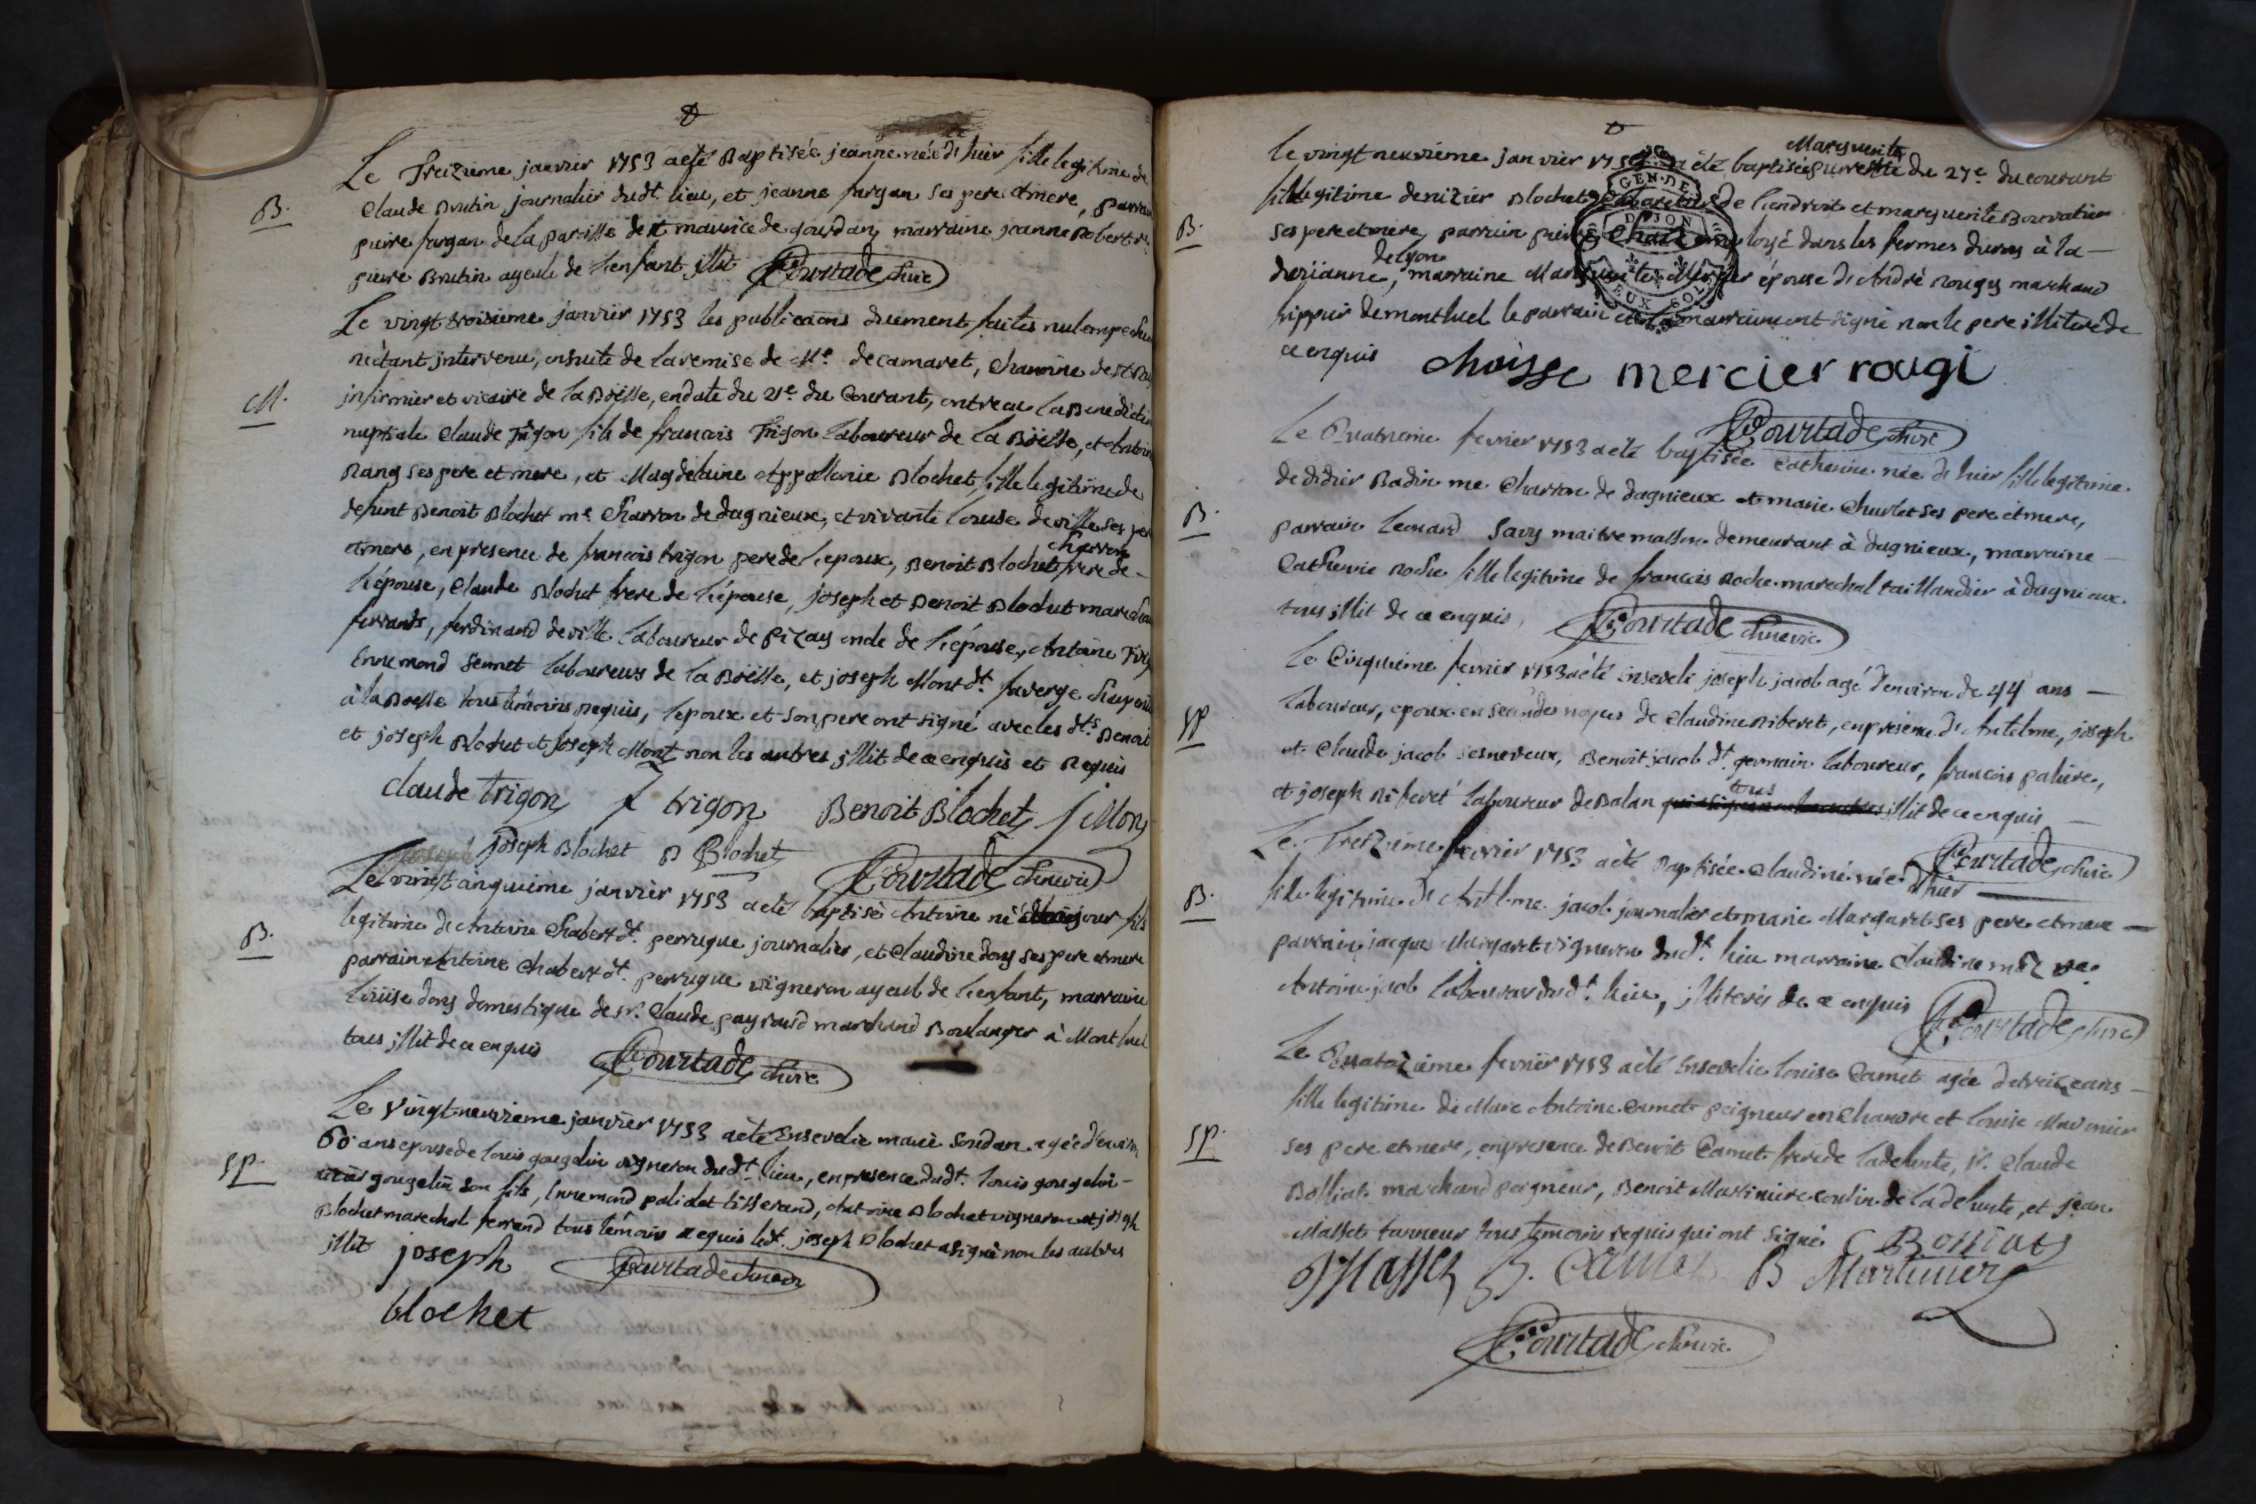 Le Treizieme janvier 1753 a eté Baptisée jeanne née d'hier fille legitime de
B. Claude Brutin journalier dudt. lieu, et jeanne fargan ses pere et mere, parrain
pierre fargan de la paroisse de st maurice de gourdan, marraine jeanne Robert
pierre Brutin ayeule de l'enfant illit Courtade Curé
Le vingt troisieme janvier 1753 les publications duement faites nul empechem
M. n'étant intervenu, ensuite de la remise de Mre. de camaret, Chanoine de st
infirmier et vicaire de la Boësse, en date du 21e du Courant, ont reçu la Benedictio
nuptiale Claude Trigon fils de francois Trigon laboureur de la Boësse, et Antoin
Rang ses pere et mere, et Magdelaine Appollonie Blochet, fille legitime de
defunt Benoit Blochet me Charron de dagnieux, et vivante Louise deville ses per
et mere, en presence de francois trigon pere de l'epoux, Benoit Blochet Charron frere de
l'épouse, Claude Blochet frere de l'épouse, joseph et Benoit Blochet marechau
ferrants, ferdinand deville laboureur de Pizay oncle de l'épouse, Antoine Trig
Ennemond Sennet laboureurs de la Boësse, et joseph Mont dt. faverge
à la Boesse tous temoins requis, l'epoux et son pere ont signé avec les dts. Benoit
et joseph Blochet et joseph Mont non les autres illit de ce enquis et requis
claude trigon f trigon Benoit Blochet j Mon
joseph Blochet B Blochet Courtade Curé
Le vingt cinquieme janvier 1753 a eté baptisé Antoine né jour fils
B. legitime de Antoine Chabert dt. perruque journalier, et Claudine dony ses pere et mere
parrain Antoine Chabert dt. perruque vigneron ayeul de l'enfant, marraine
Loüise dony domestique de sr. Claude payraud marchand Boulanger à Montluel
tous illit de ce enquis Courtade Curé
Le Vingt neuvieme janvier 1753 a eté Ensevelie marie Soudan agée d'environ
60 ans epouse de Louis gougelin vigneron dudt. lieu, en presence dudt. Louis gougelin
SP. gougelin son fils, Ennemond palidet tisserand, Antoine Blochet vigneron et joseph
Blochet marechal ferrand tous temoins requis ledt. joseph Blochet a signé non les autres
illit joseph Courtade Curé
blochet
le vingt neuvieme janvier 175 a eté baptisée Marguerite du 27e du courant
fille legitime de nizier Blochet de l'endroit et marguerite Bouvatier
B. ses pere et mere, parrain pierre employé dans les fermes du roy à la
de Lyon
marraine Marguerite Mercier épouse de André Rougy marchand
frippier de montluel le parrain et la marraine ont signé non le pere illiteré de
ce enquis choisse mercier rougi
Courtade Curé
Le Quatrieme fevrier 1753 a eté baptisée Catherine née d'hier fille legitime
de didier Badin me Charron de dagnieux et marie Churlet ses pere et mere,
B. parrain Leonard Savy maitre masson demeurant à dagnieux, marraine
Catherine Roche fille legitime de francois Roche marechal taillandier à dagnieux
tous illit de ce enquis, Courtade Curé
Le Cinquieme fevrier 1753 a eté Enseveli joseph jacob agé d'environ de 44 ans
SP laboureur, epoux en secondes nopces de Claudine Riberet, en presence de Antelme, joseph
et Claude jacob ses neveux, Benoit jacob dt. germain laboureur, francois paliere,
et joseph Riberet laboureur de Balan tous illit de ce enquis
Courtade Curé
Le Treizieme fevrier 1753 a eté Baptisée Claudine née d'hier
B. fille legitime de Antelme jacob journalier et marie Margaret ses pere et mere
parrain jacques Margaret vigneron dudt. lieu marraine Claudine ve.
Antoine jacob laboureur dudt. lieu, illiterés de ce enquis
Courtade Curé
Le Quatorzieme fevrier 1753 a eté Ensevelie Louise Camet agée de treize ans
fille legitime de Marc Antoine Camet peigneur en chanvre et Louise Meunier
SP. ses pere et mere, en presence de Benoit Camet frere de la defunte, sr. Claude
Bossiat marchand peigneur, Benoit Martinier cousin de la defunte, et jean
Masset tanneur tous temoins requis qui ont signé C Bossiat
J Masset B. Camet B Martinier
Courtade Curé